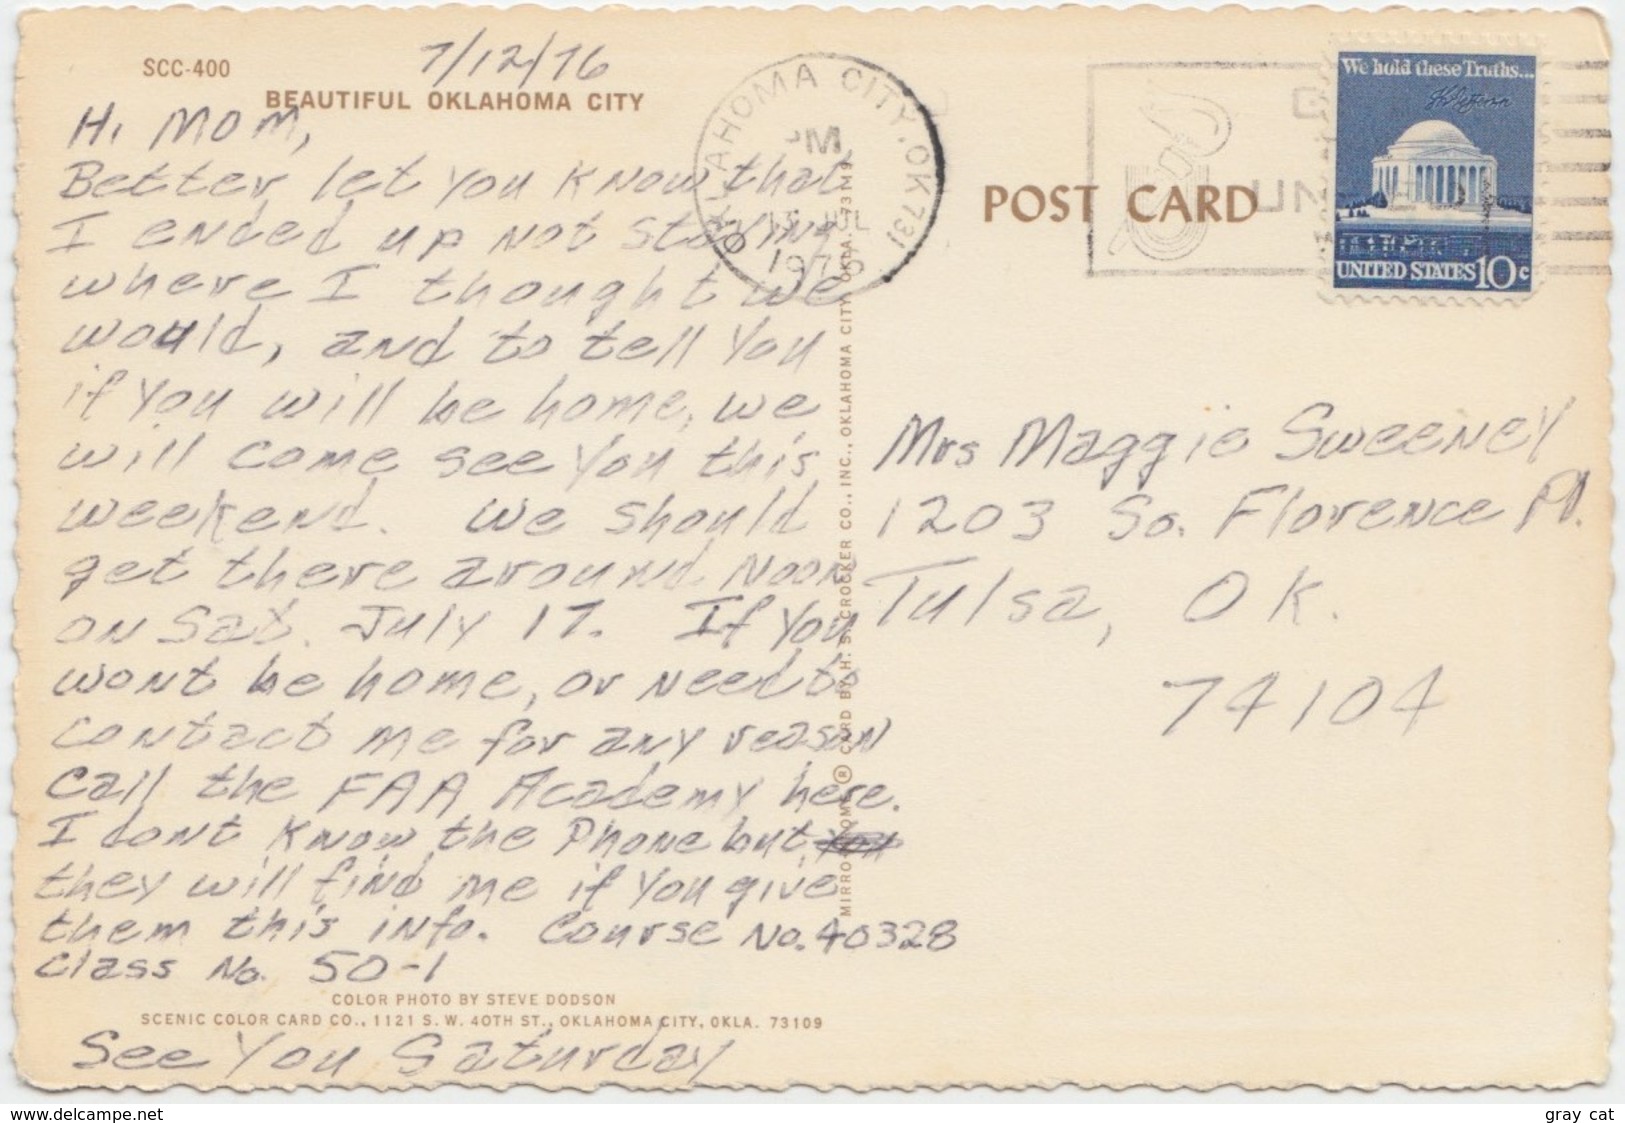 SCC-400
7/12/76
BEAUTIFUL OKLAHOMA CITY
Hi Mom,
Better let you know that
I ended up not staying
where I thought we
would, and to tell you
if you will be home, we
will come see you this
weekend. We should
get there around noon
on Sat. July 17. If you
wont be home, or need to
contact me for any reason
call the FAA Academy here.
I dont know the phone but
they will find me if you give
them this info. Course No. 40328
Class No. 50-1
COLOR PHOTO BY STEVE DODSON
SCENIC COLOR CARD CO., 1121 S. W. 40TH ST., OKLAHOMA CITY, OKLA. 73109
See You Saturday
CARD BY H. S. CROCKER CO., INC., OKLAHOMA CITY, OKLA.
OKLAHOMA CITY, OK 731
PM
JUL
1976
POST CARD
We hold these Truths...
UNITED STATES 10c
Mrs Maggie Sweeney
1203 So. Florence Pl.
Tulsa, OK.
74104
www.delcampe.net
gray cat